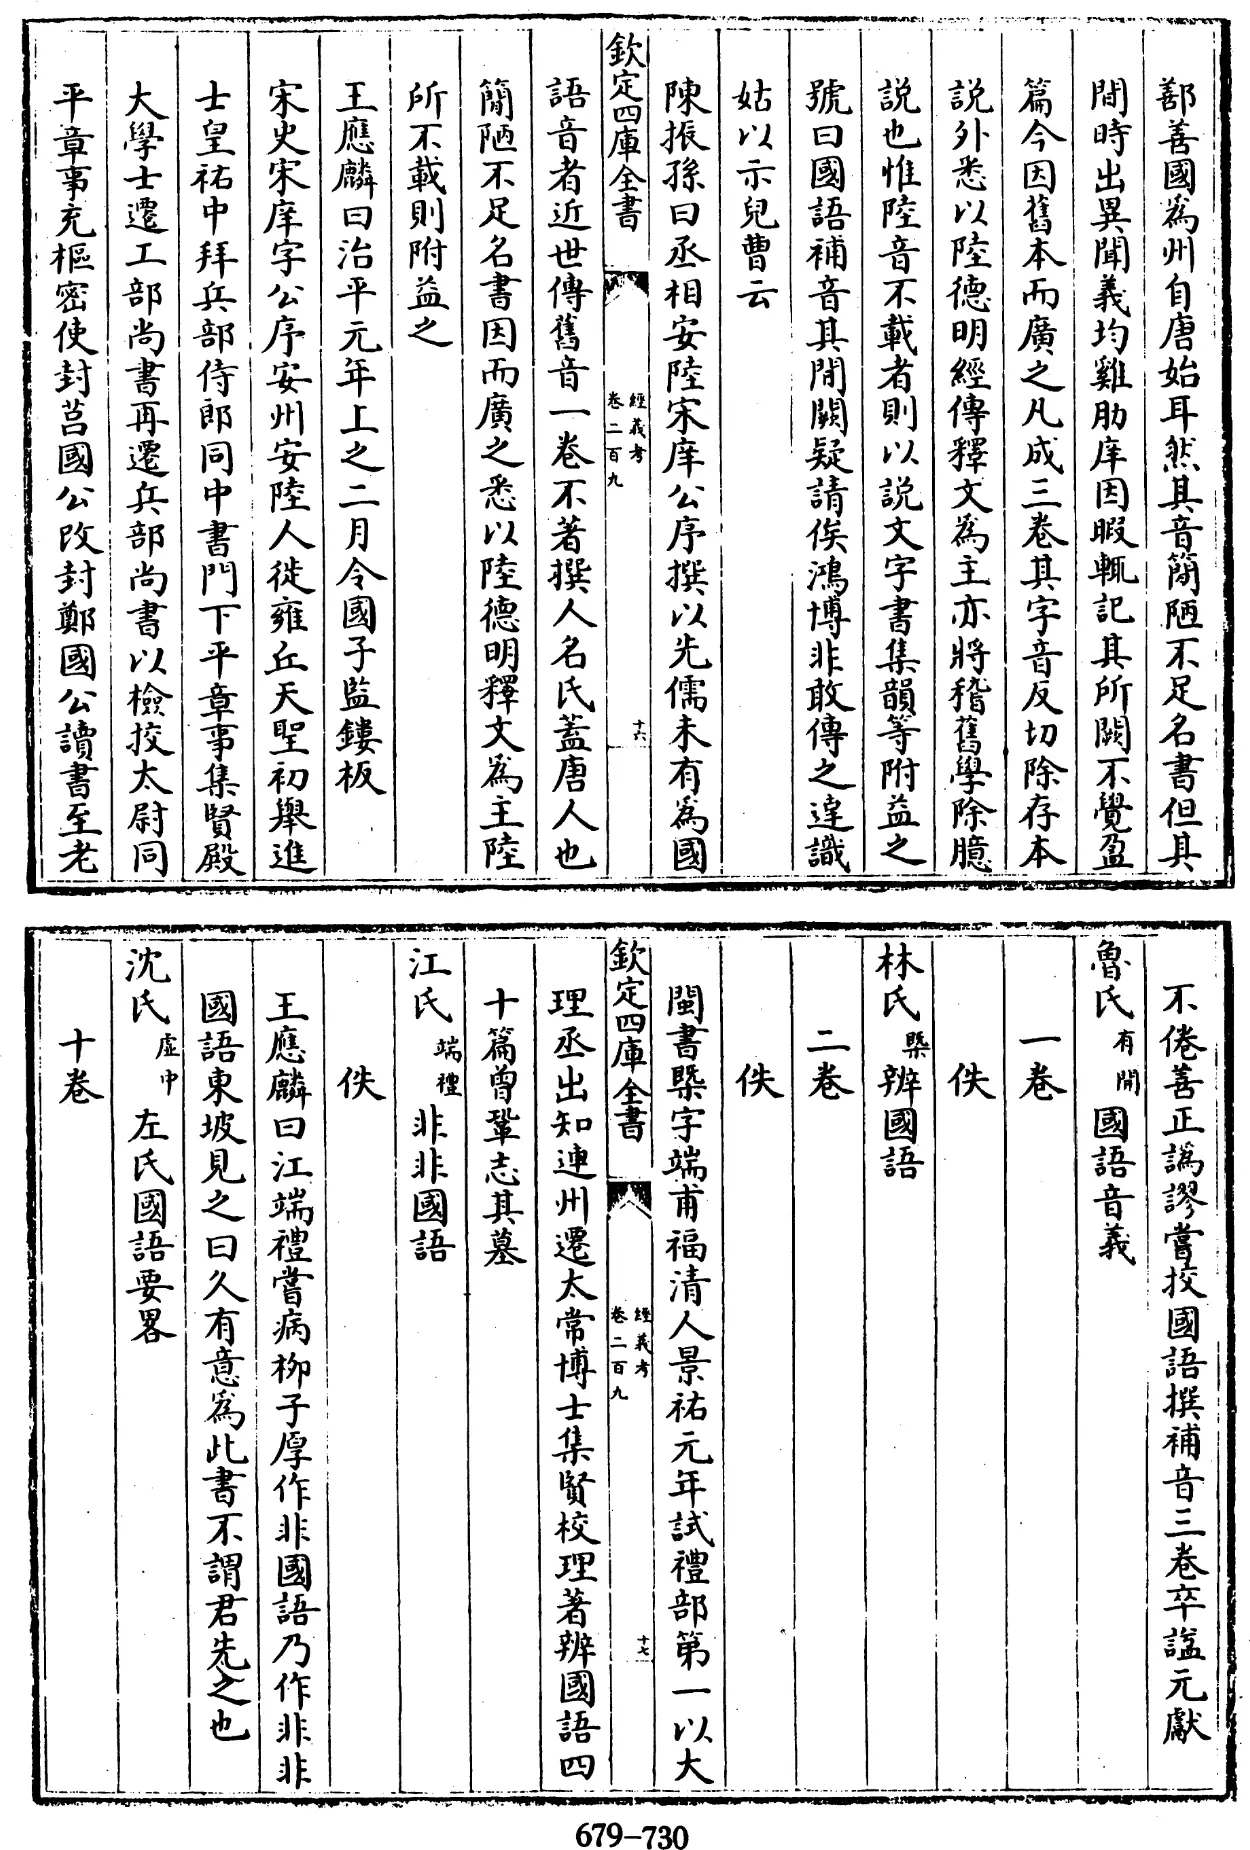 鄯善國為州自唐始耳然其音簡陋不足名書但其
間時出異聞義均雞肋庠因暇輒記其所闕不覺盈
篇今因舊本而廣之凡成三卷其字音反切除存本
說外悉以陸德明經傳釋文為主亦將稽舊學除臆
説也惟陸音不載者則以説文字書集韻等附益之
號曰國語補音其間闕疑請俟鴻博非敢傳之達識
姑以示兒曹云
陳振孫曰丞相安陸宋庠公序撰以先儒未有為國
欽定四庫全書
經義考
卷二百九
十六
語音者近世傳舊音一卷不著撰人名氏蓋唐人也
簡陋不足名書因而廣之悉以陸德明釋文為主陸
所不載則附益之
王應麟曰治平元年上之二月令國子監鏤板
宋史宋庠字公序安州安陸人徙雍丘天聖初舉進
士皇祐中拜兵部侍郎同中書門下平章事集賢殿
大學士遷工部尚書再遷兵部尚書以檢挍太尉同
平章事充樞密使封莒國公改封鄭國公讀書至老
不倦善正譌謬嘗挍國語撰補音三卷卒諡元獻
魯氏有開國語音義
一卷
佚
林氏㮣辨國語
二卷
佚
閩書㮣字端甫福清人景祐元年試禮部第一以大
欽定四庫全書
經義考
卷二百九
十七
理丞出知連州遷太常博士集賢校理著辨國語四
十篇曾鞏志其墓
江氏端禮非非國語
佚
王應麟曰江端禮嘗病柳子厚作非國語乃作非非
國語東坡見之曰久有意為此書不謂君先之也
沈氏虛中左氏國語要畧
十卷
679-730